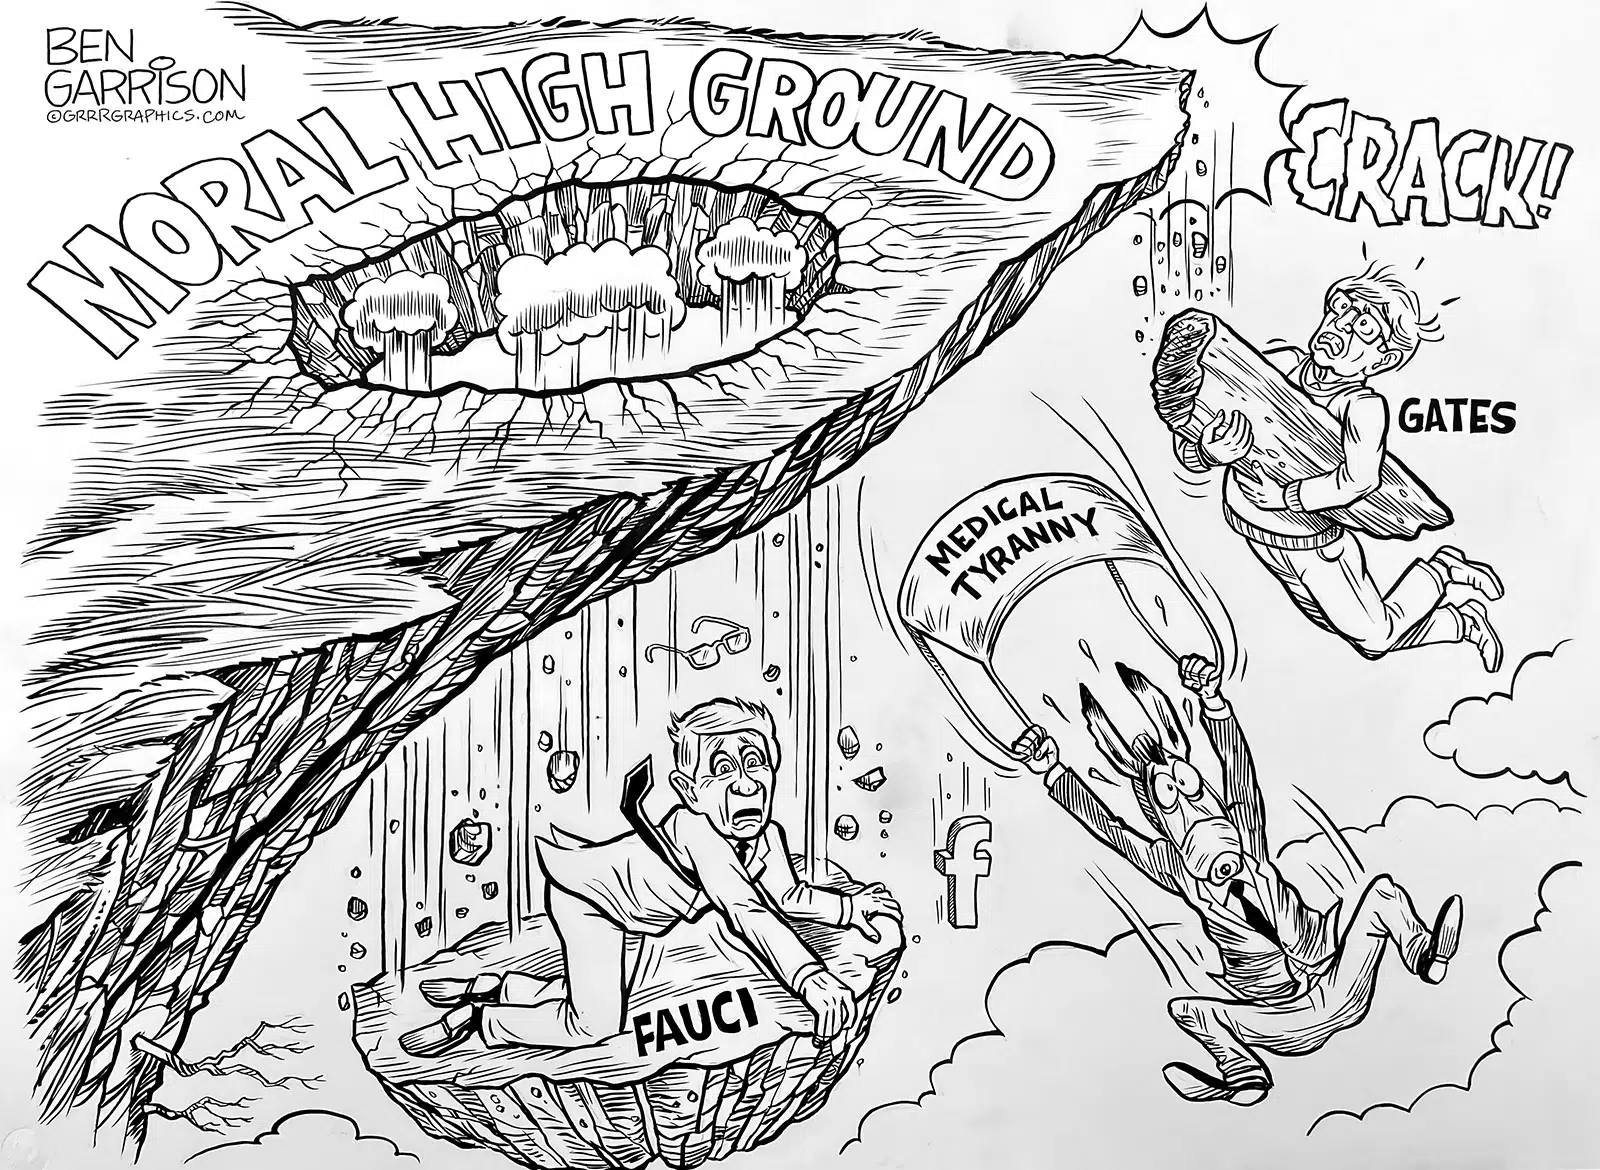 BEN
GARRISON
©GRRRGRAPHICS.COM
MORAL HIGH GROUND
CRACK!
GATES
MEDICAL
TYRANNY
f
FAUCI